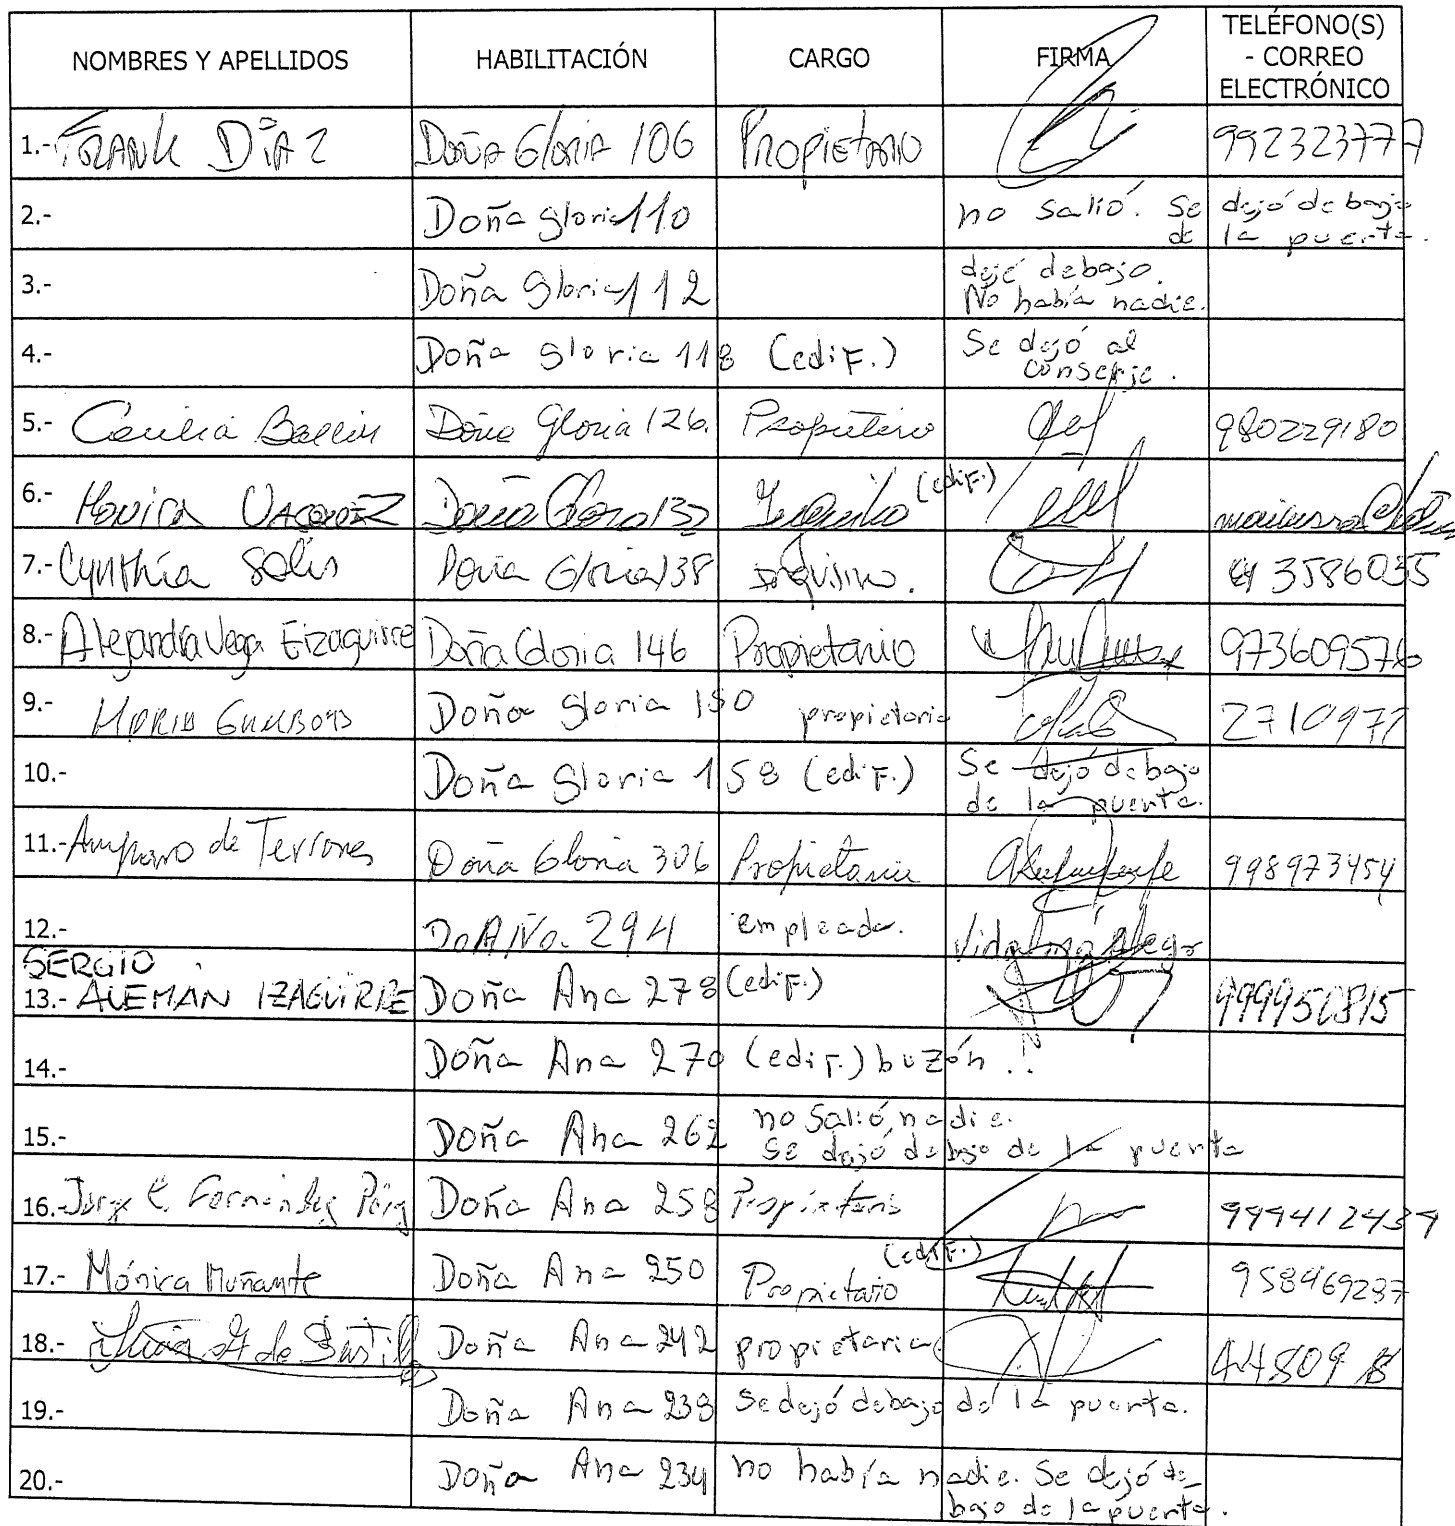 NOMBRES Y APELLIDOS HABILITACIÓN CARGO FIRMA TELÉFONO(S) - CORREO ELECTRÓNICO
1.- FRANK DÍAZ Doña Gloria 106 Propietario 992323777
2.- Doña gloria 110 no salió. Se dejó debajo de la puerta.
3.- Doña Gloria 112 dejé debajo. No había nadie.
4.- Doña gloria 118 (edif.) Se dejó al conserje.
5.- Cecilia Doña Gloria 126. Propietario 980229180
6.- Monica Vasquez Doña Gloria 132 Inquilino (edif.)
7.- Cynthia Solis Doña Gloria 138 inquilino. 3586035
8.- Alejandra Vega Eizaguirre Doña Gloria 146 Propietario 973609576
9.- MARIA GAMBOA Doña Gloria 150 propietaria 2710977
10.- Doña Gloria 158 (edif.) Se dejó debajo de la puerta.
11.- Amparo de Terrones Doña Gloria 306 Propietaria 998973454
12.- 294 empleada.
SERGIO
13.- ALEMÁN IZAGUIRRE Doña Ana 278 (edif.) 999950815
14.- Doña Ana 270 (edif.) buzón..
15.- Doña Ana 262 no salió nadie. Se dejó debajo de la puerta
16.- Jorge E. Fernández Puig Doña Ana 258 Propietario 999412439
17.- Mónica Muñante Doña Ana 250 Propietario (edif.) 958469287
18.- de Doña Ana 242 propietaria
19.- Doña Ana 238 Se dejó debajo de la puerta.
20.- Doña Ana 234 no había nadie. Se dejó debajo de la puerta.